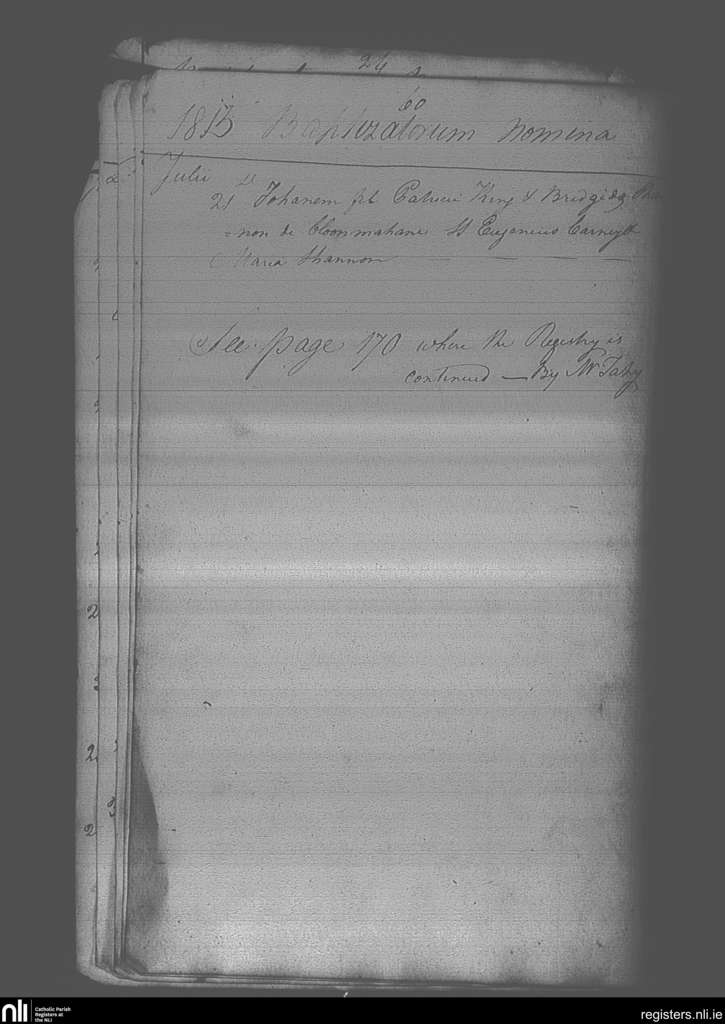 24
60
1813 Baptizatorum nomina
Julii
21 Johanem fil Patricii King & Bridgidæ Shan
=non de Cloonmahane St Eugenius
Maria Shannon
See page 170 where the Registry is
continued — By Mr
nli Catholic Parish
Registers at
the NLI
registers.nli.ie